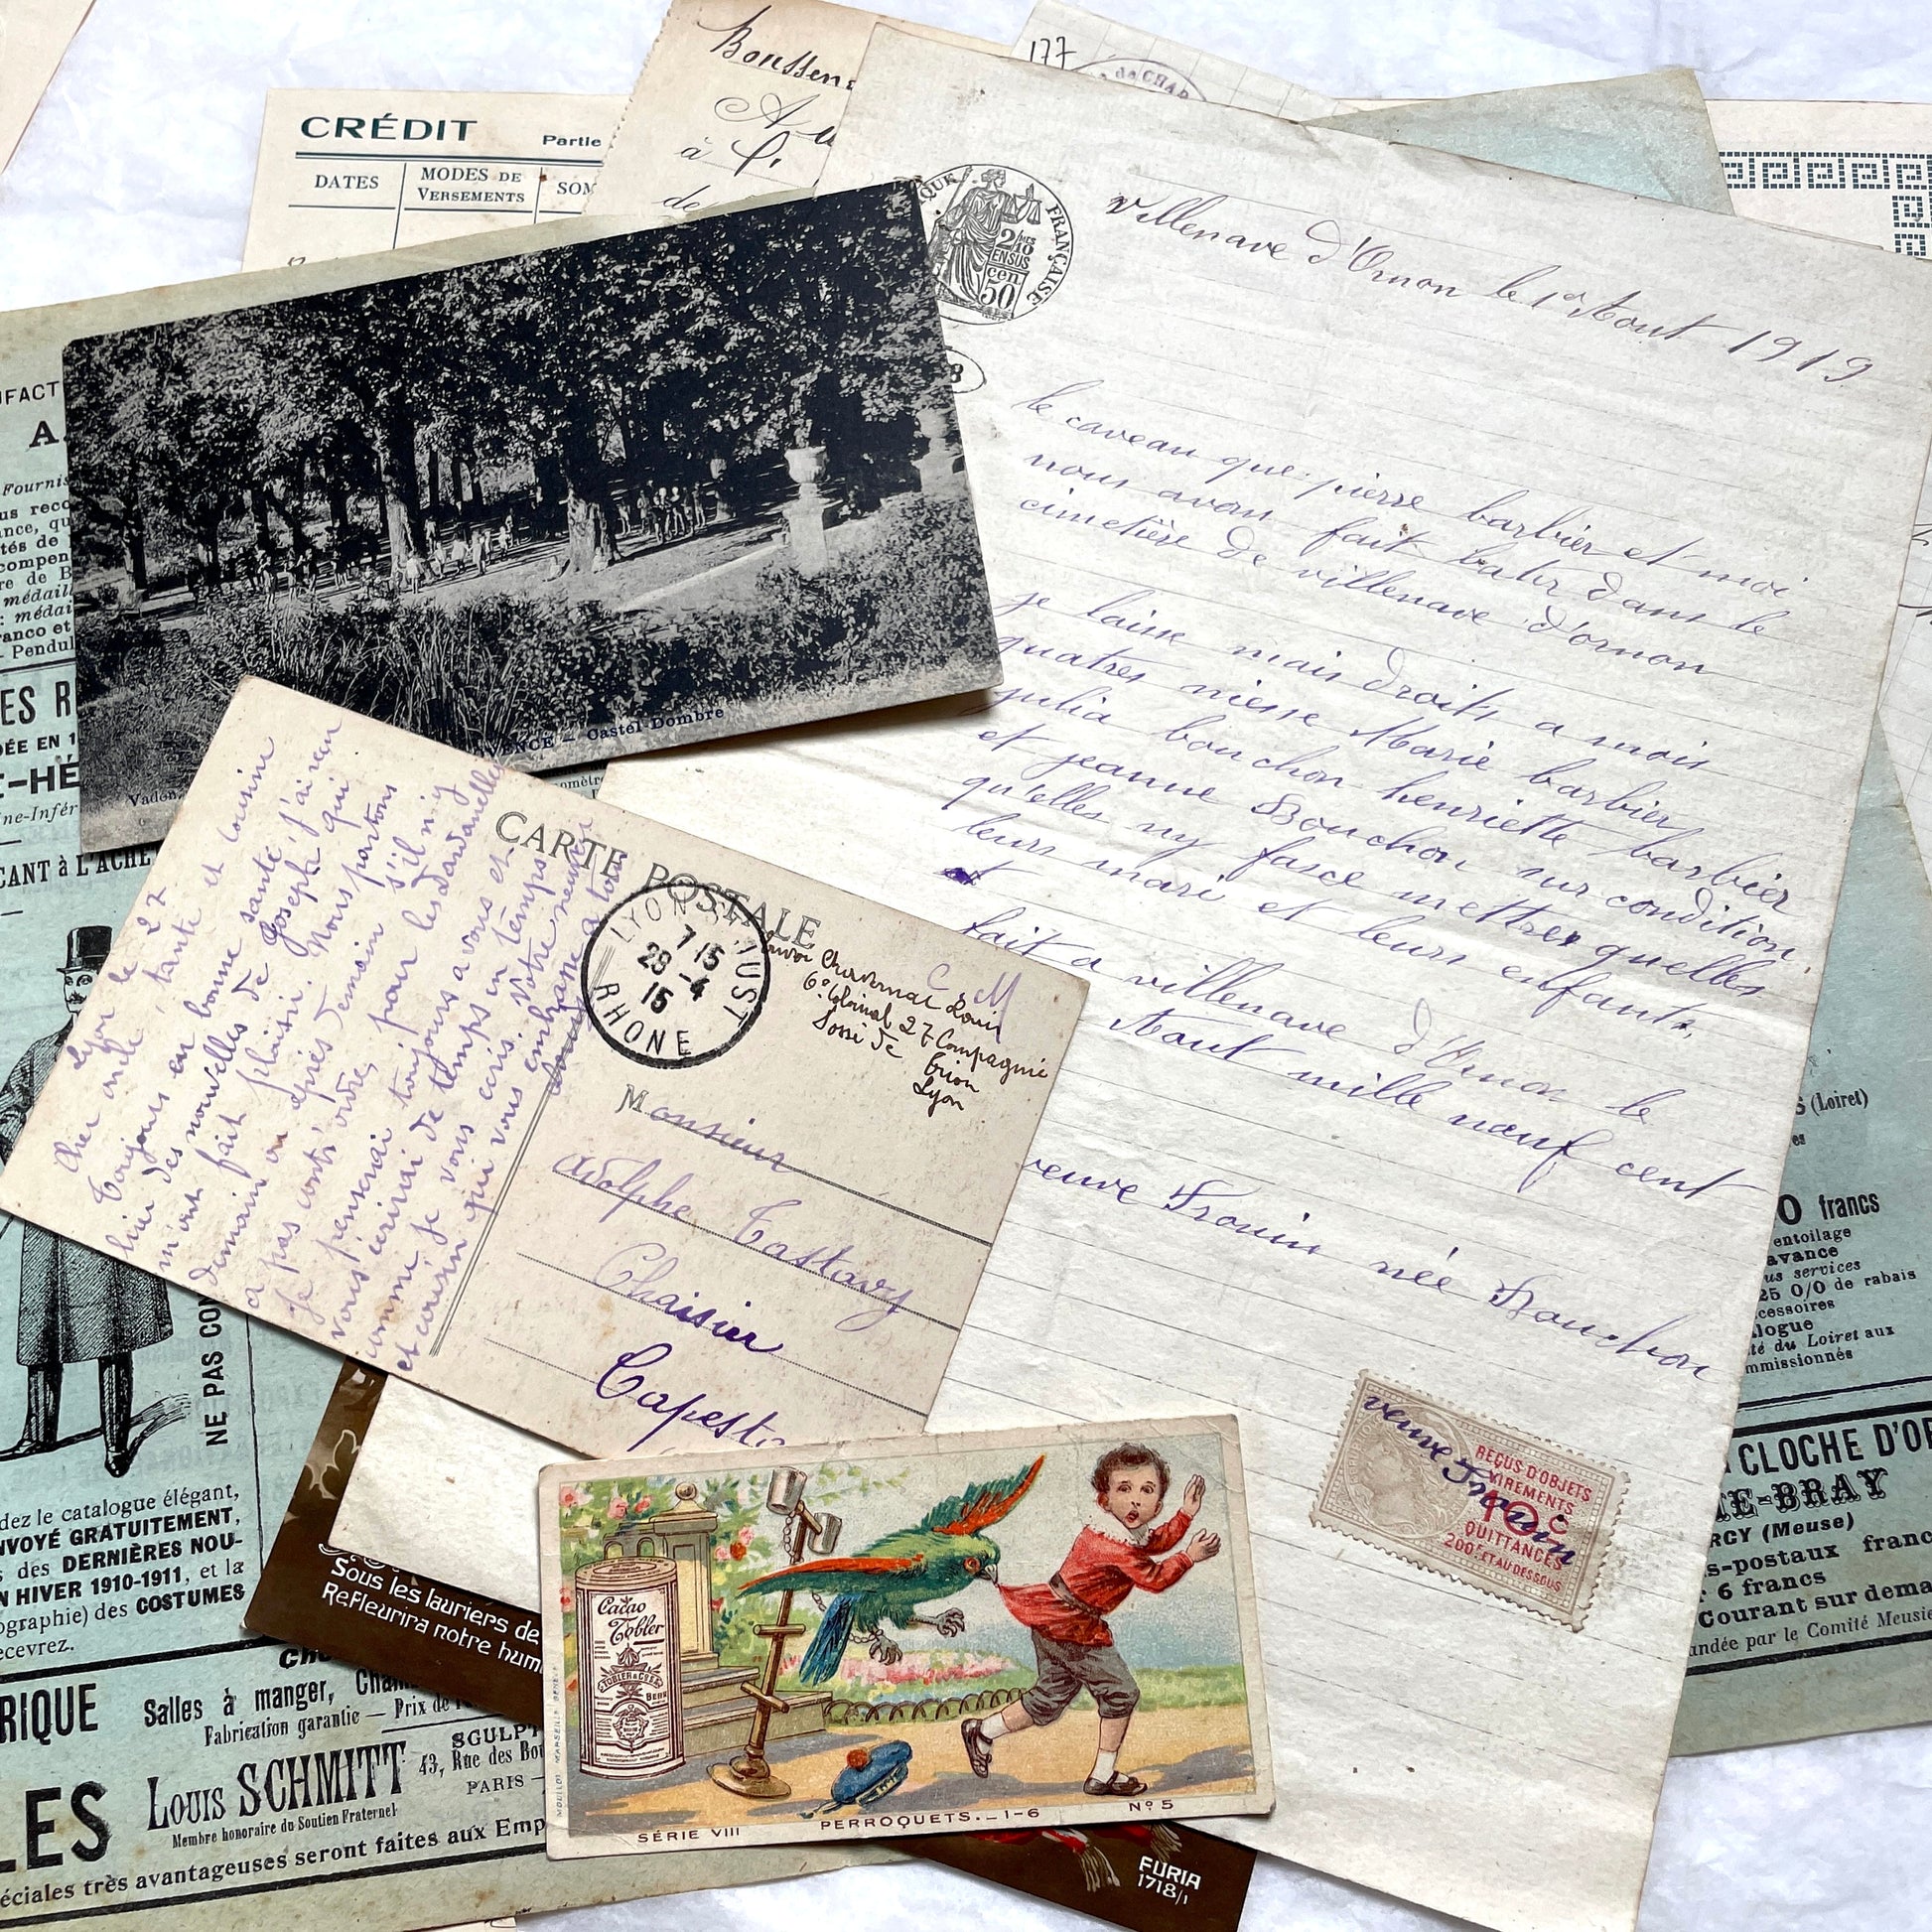 CRÉDIT
Partie
DATES
MODES DE
VERSEMENTS
Boussen
à
de
177
de CHAR
QUE FRANÇAISE
2/10
EN SUS
50
cen
Villenave d'Ornon le 1er Aout 1919
le caveau que pierre barbier et moi
nous avon fait batir dans le
cimetière de villenave d'ornon
je laisse mais droits a mais
quatres niesse Marie barbier
julia bouchon henriette barbier
et jeanne Bouchon sur condition
qu'elles ny fasce mettres quelles
leurs mari et leurs enfants.
fait a villenave d'Ornon le
Aout mille neuf cent
veuve Frouin née Bouchon
veuve Frouin
REÇUS D'OBJETS
VIREMENTS
10 c
QUITTANCES
200F ET AU DESSOUS
VENCE — Castel Dombre
CARTE POSTALE
LYON ST JUST
7 15
28 - 4
15
RHONE
C & M
Louis
6e Colonial 27 Compagnie
de Trion
Lyon
Monsieur
Adolphe Castavy
Chaisier
Capest
Lyon le 27
Cher oncle, tante et cousine
Toujours en bonne santé j'ai reçu
hier des nouvelles de Joseph qui
m'ont fait plaisir. Nous partons
demain ou après demain s'il n'y
a pas contr'ordre, pour les Dardanelles
Je penserai toujours a vous et
vous écrirai de temps en temps
comme je vous écris. Votre neveu
et cousin qui vous embrasse a tous
Louis
UFACT
A
Fournis
us reco
ance, qu
tés de
compen
re de B
médail
: médai
anco et
- Pendul
ES R
DÉE EN 1
E-HÉ
ine-Infér
CANT à L'ACHE
NE PAS CON
dez le catalogue élégant,
NVOYÉ GRATUITEMENT,
des DERNIÈRES NOU-
N HIVER 1910-1911, et la
ographie) des COSTUMES
ecevrez.
RIQUE
Salles à manger, Cham
Fabrication garantie — Prix de
LES
LOUIS SCHMITT
Membre honoraire du Soutien Fraternel
SCULPT
43, Rue des Bou
PARIS —
éciales très avantageuses seront faites aux Emp
Sous les lauriers de
Refleurira notre hum
FURIA
1718/1
Cacao
Tobler
TOBLER & Co
BERN
SÉRIE VIII
PERROQUETS._1-6
No 5
S (Loiret)
es
0 francs
entoilage
avance
us services
25 0/0 de rabais
cessoires
logue
té du Loiret aux
mmissionnés
CLOCHE D'OR
IE-BRAY
RCY (Meuse)
s-postaux franc
r 6 francs
Courant sur dema
andée par le Comité Meusie